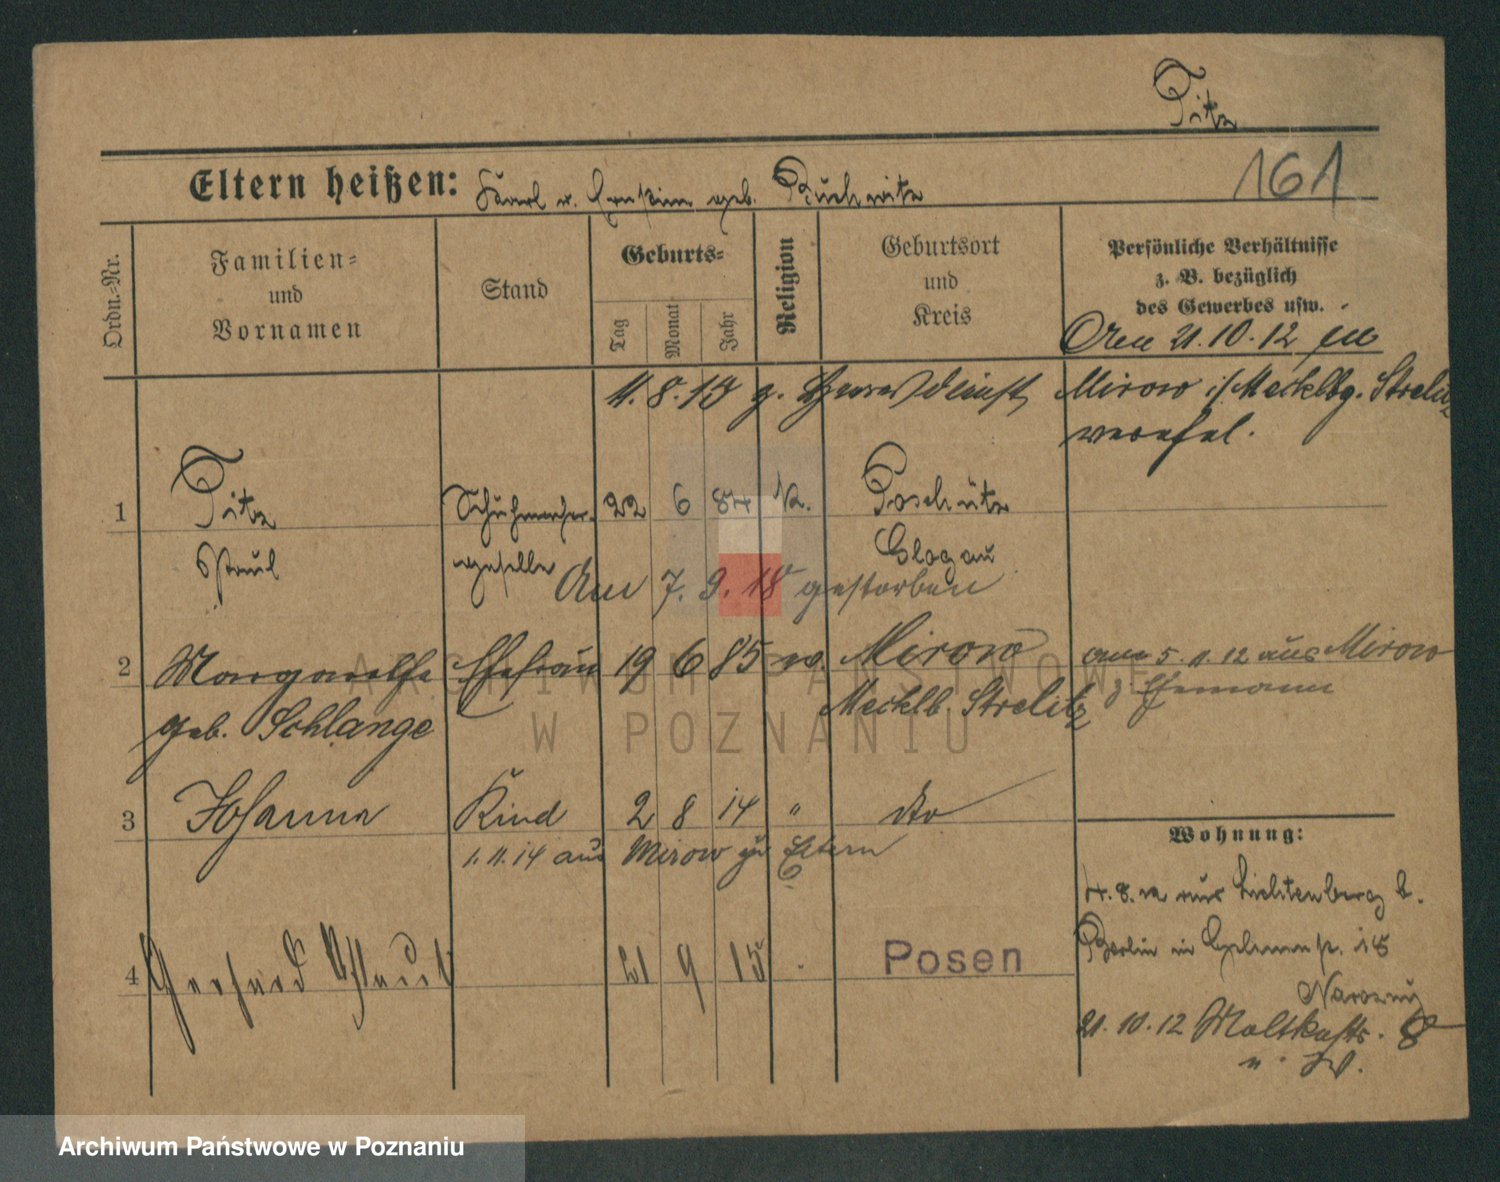 Titz
Eltern heißen: Karl u. Ernstine geb. Buchwitz
161
Ordn.-Nr.
Familien-
und
Vornamen
Stand
Geburts-
Tag
Monat
Jahr
Religion
Geburtsort
und
Kreis
Persönliche Verhältnisse
z. B. bezüglich
des Gewerbes usw.
Am 21.10.12 in
Mirow i/Mecklbg. Strelitz
verehel.
11.8.15 z. Heeresdienst
1 Titz Schuhmacher- 22 6 84 K. Poschütz
Paul geselle Glogau
Am 7.9.18 gestorben
2 Margarethe Ehefrau 19 6 85 ev. Mirow am 5.11.12 aus Mirow
geb. Schlange Mecklb. Strelitz z. Ehemann
3 Johanna Kind 2 8 14 " dto
1.11.14 aus Mirow zu Eltern
4 Gerhard Paul 21 9 15 Posen
Wohnung:
4.8.12 aus Lichtenberg b.
Berlin in 18
21.10.12 Moltkestr. 8
n. W.
ARCHIWUM PAŃSTWOWE
W POZNANIU
Archiwum Państwowe w Poznaniu